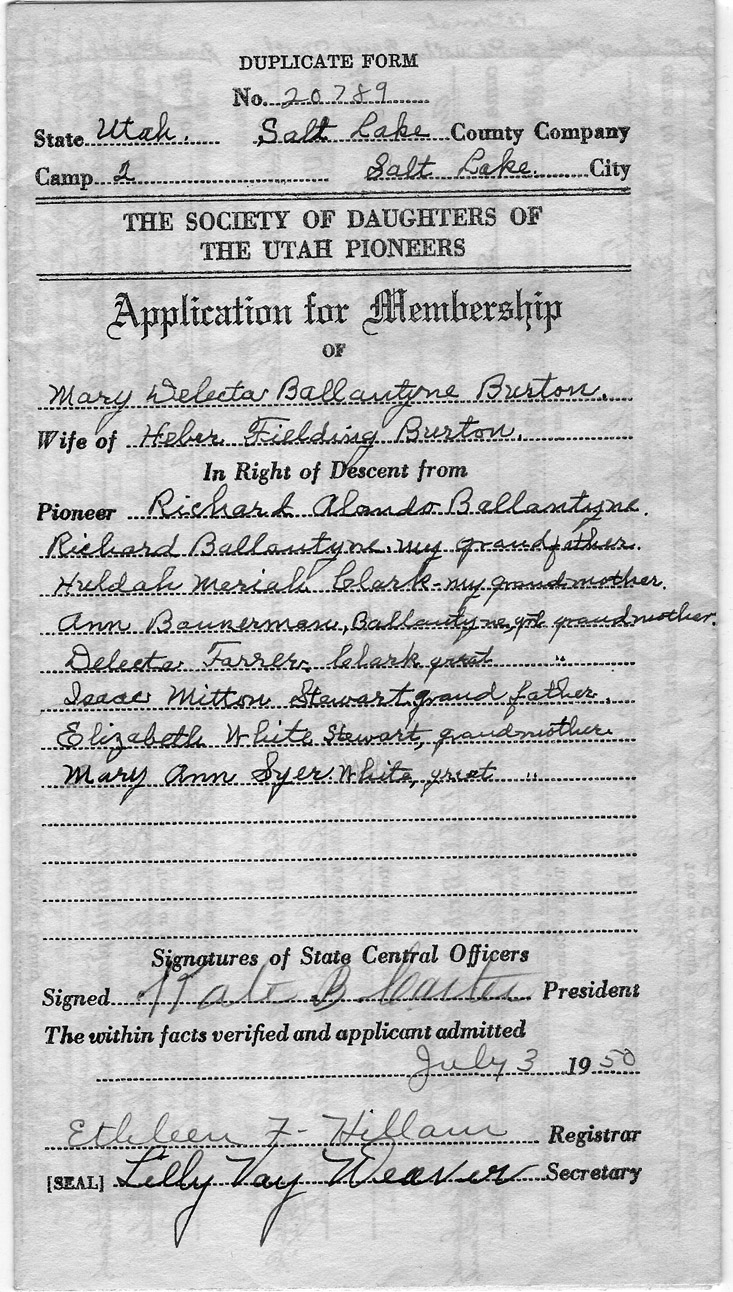 DUPLICATE FORM
No. 20789
State Utah. Salt Lake County Company
Camp 2 Salt Lake City
THE SOCIETY OF DAUGHTERS OF
THE UTAH PIONEERS
Application for Membership
OF
Mary Delecta Ballantyne Burton.
Wife of Heber Fielding Burton.
In Right of Descent from
Pioneer Richard Alando Ballantyne.
Richard Ballantyne. my grandfather.
Huldah Meriah Clark - my grandmother.
Ann Bannerman, Ballantyne, grandmother.
Delecta Farrer Clark great "
Isaac Mitton Stewart grand father.
Elizabeth White Stewart, grandmother
Mary Ann Syer White, great "
Signatures of State Central Officers
Signed Kate B Carter President
The within facts verified and applicant admitted
July 3 1950
Ethleen F. Hillam Registrar
[SEAL] Lilly Vay Weaver Secretary